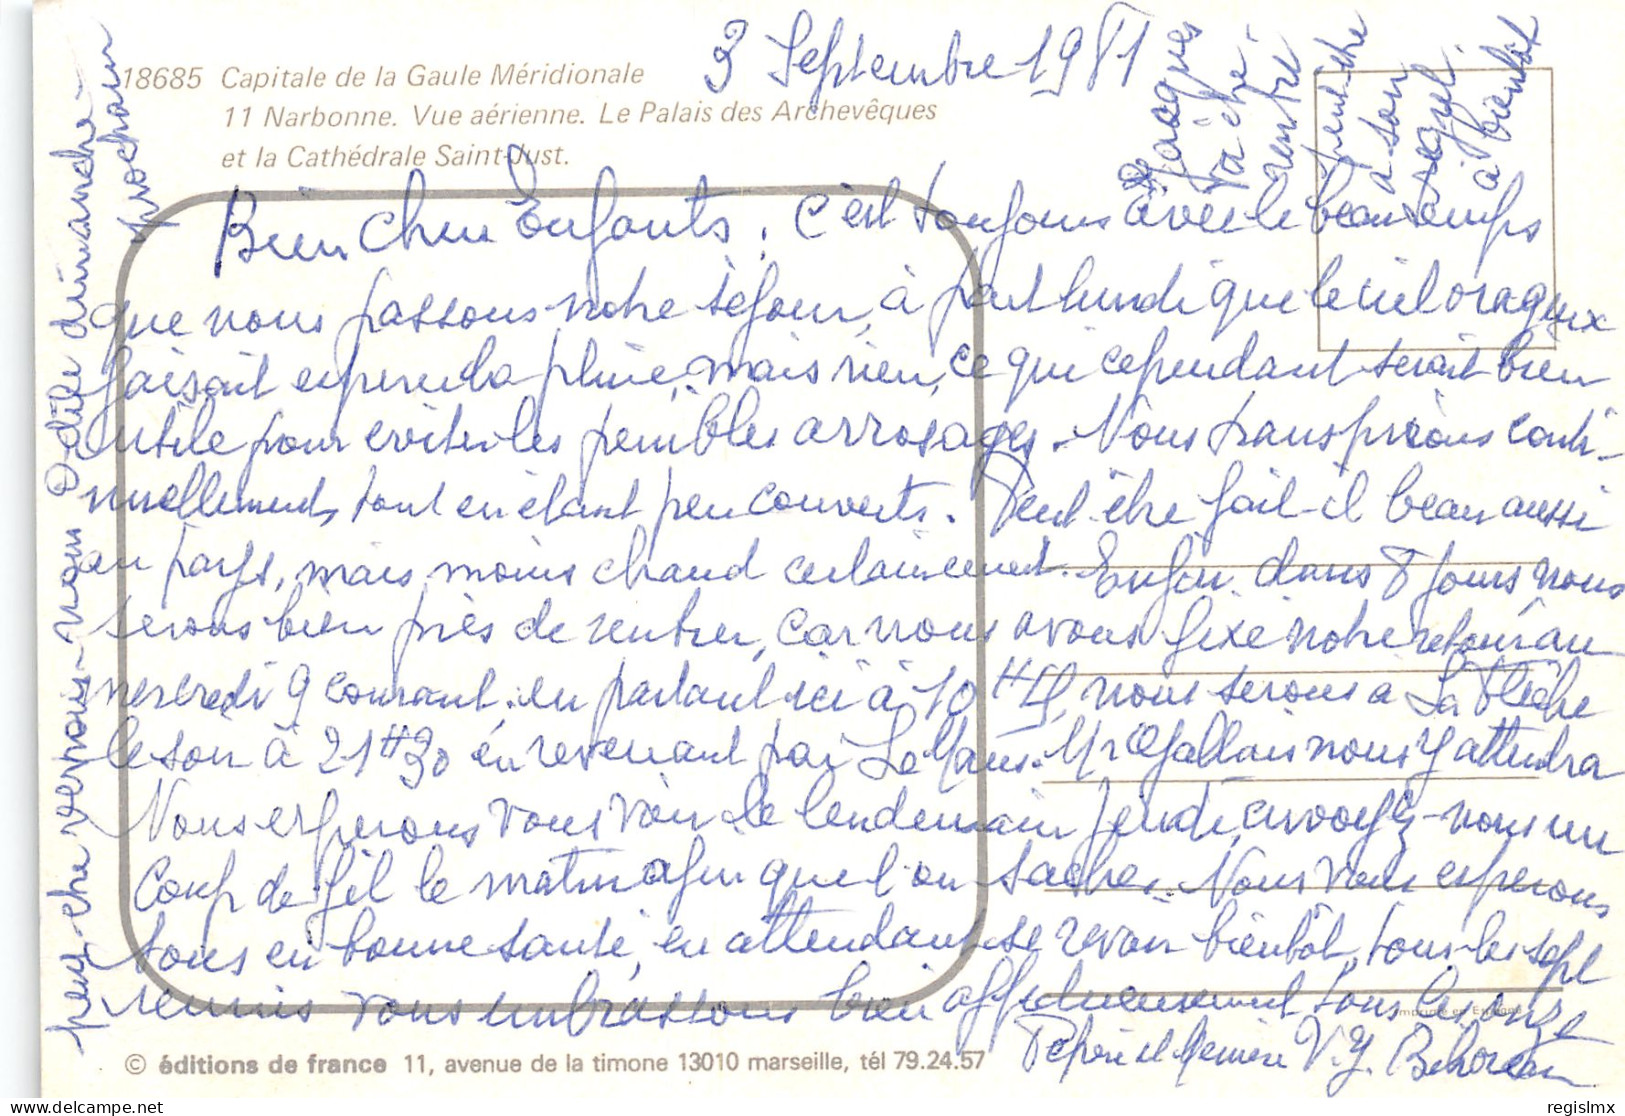 3 Septembre 1981
18685 Capitale de la Gaule Méridionale
11 Narbonne. Vue aérienne. Le Palais des Archevêques
et la Cathédrale Saint-Just.
Bien Chers Enfants, c'est toujours avec le beau temps
que nous passons notre séjour, à part lundi que le ciel orageux
faisait esperer la pluie, mais rien, ce qui cependant serait bien
utile pour eviter les penibles arrosages. Nous transpirions conti-
nuellement, tout en étant peu couverts. Peut-être fait-il beau aussi
au pays, mais moins chaud certainement. Enfin dans 8 jours nous
serons bien près de rentrer, car nous avons fixé notre retour au
mercredi 9 courant, en partant ici à 10H, nous serons à La Flèche
le soir à 21H30 en revenant par Le Mans. Mr Gallais nous y attendra
Nous esperons vous voir le lendemain jeudi, envoyez-nous un
Coup de fil le matin afin que l'on sache. Nous vous esperons
tous en bonne santé, en attendant se revoir bientôt, tous les sept
reunis vous embrassons bien affectueusement tous les onze
Pépère et Mémère V.Y. Behoreau
peut-être verrons-nous Odile dimanche
prochain
Jacques
va être
rentré
peut-être
a son
reçu
à bientôt
Imprimé en Espagne
© éditions de france 11, avenue de la timone 13010 marseille, tél 79.24.57
regislmx